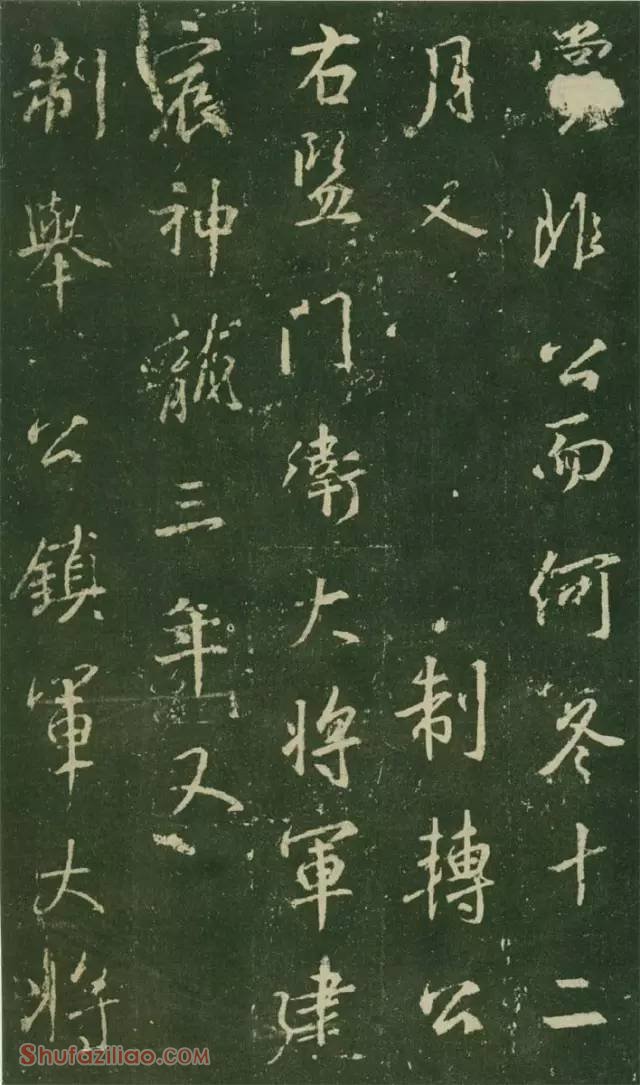 非公而何冬十二
月又 制轉公
右監門衛大將軍建
宸神龍三年又
制舉 公鎮軍大將
Shufaziliao.COM